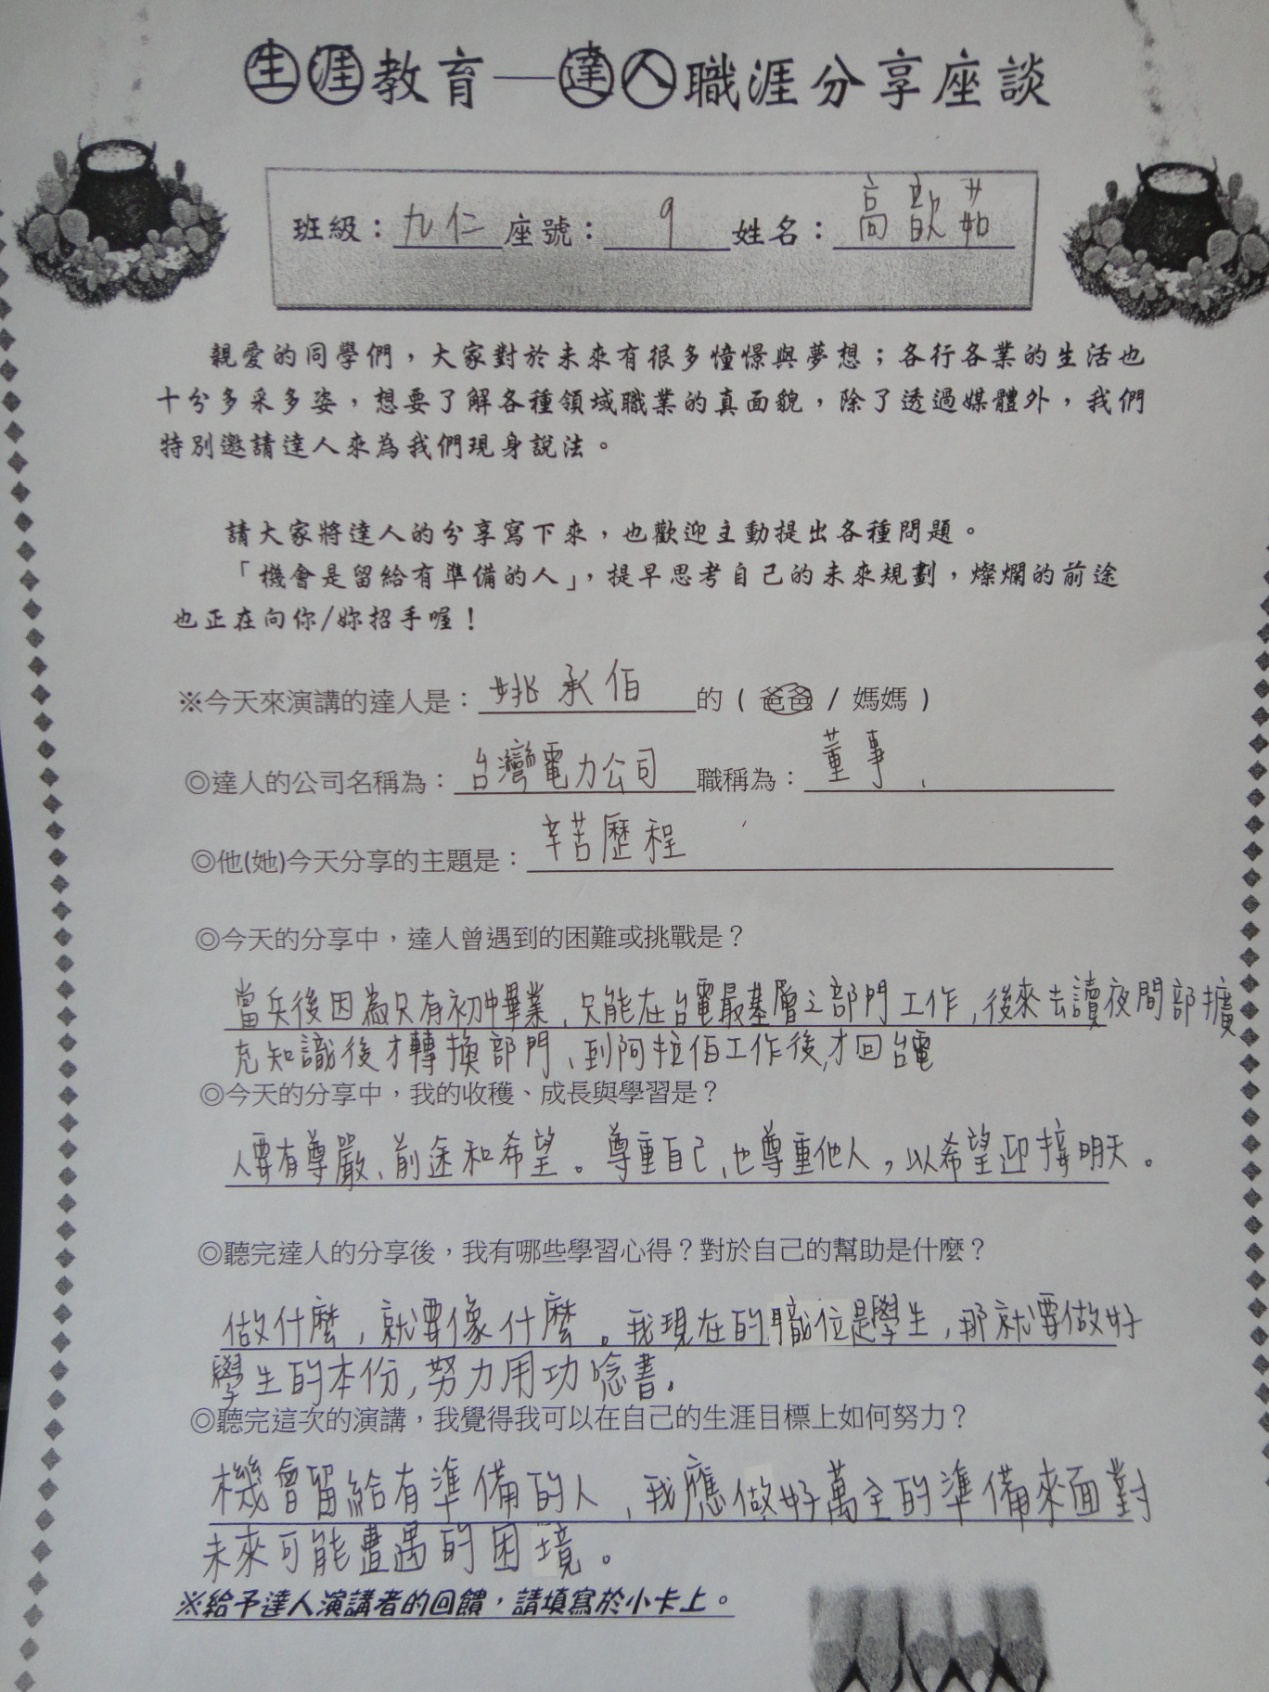 生涯教育—達人職涯分享座談
班級：九仁座號：9姓名：高歆茹
親愛的同學們，大家對於未來有很多憧憬與夢想；各行各業的生活也
十分多采多姿，想要了解各種領域職業的真面貌，除了透過媒體外，我們
特別邀請達人來為我們現身說法。
請大家將達人的分享寫下來，也歡迎主動提出各種問題。
「機會是留給有準備的人」，提早思考自己的未來規劃，燦爛的前途
也正在向你/妳招手喔！
※今天來演講的達人是：姚承佰的（爸爸/媽媽）
◎達人的公司名稱為：台灣電力公司職稱為：董事
◎他(她)今天分享的主題是：辛苦歷程
◎今天的分享中，達人曾遇到的困難或挑戰是？
當兵後因為只有初中畢業，只能在台電最基層之部門工作，後來去讀夜間部擴
充知識後才轉換部門、到阿拉伯工作後，才回台電
◎今天的分享中，我的收穫、成長與學習是？
人要有尊嚴、前途和希望。尊重自己，也尊重他人，以希望迎接明天。
◎聽完達人的分享後，我有哪些學習心得？對於自己的幫助是什麼？
做什麼，就要像什麼。我現在的職位是學生，那就要做好
學生的本份，努力用功唸書。
◎聽完這次的演講，我覺得我可以在自己的生涯目標上如何努力？
機會留給有準備的人，我應做好萬全的準備來面對
未來可能遭遇的困境。
※給予達人演講者的回饋，請填寫於小卡上。